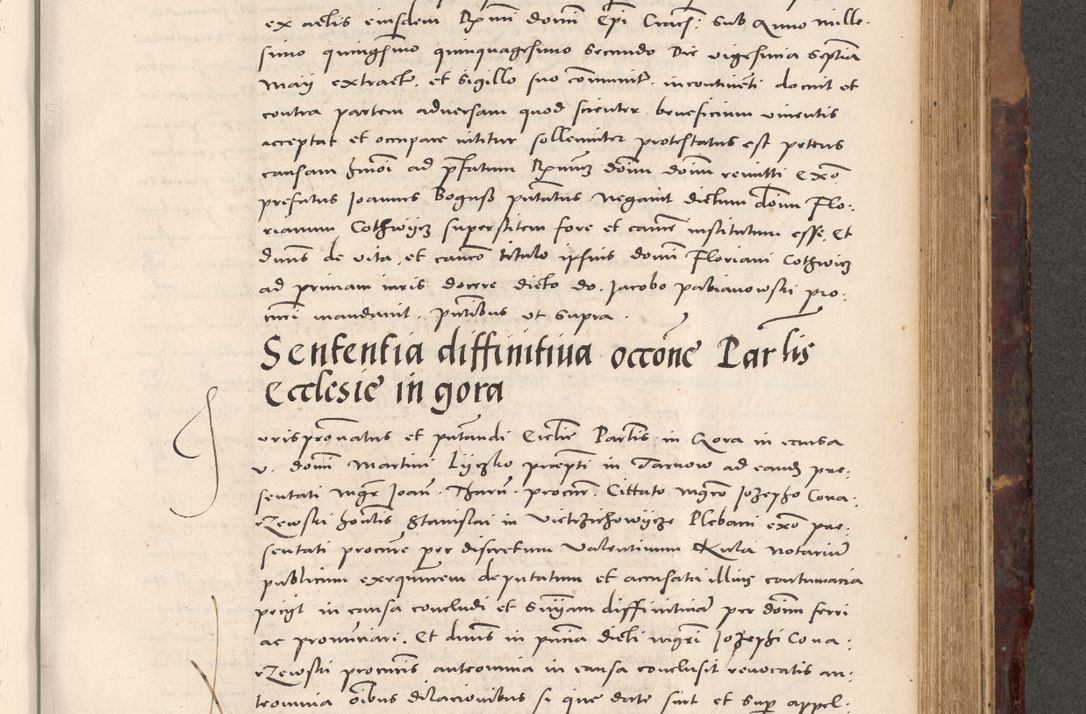 ex actis eiusdem Rmi domi Epi Cracs. Sub Anno mille-
simo quingmo quinquagesimo secundo Die vigesima septia
Maij extract. et sigillo suo comunit. incontineti docuit et
contra partem adversam quod scienter beneficium viventis
acceptat et occupare nititur sollemniter protestatus est petens
causam hmoi ad pfatum Rmum domi domi remitti exo
prefatus Joannes Boguss putatus negavit dictum domi Flo-
rianum Cothwicz superstitem fore et cance institutum esse. Et
duns de vita et canco titulo ipsius domi Floriani Cothwicz
ad primam iuris docere dicto do. Jacobo pabianowski pro-
curi mandavit. putibus ut supra.
Sententia diffinitiua occone Parlis
Ecclesie in gora
urispronatus et putandi Ecclie Parlis in Gora in causa
v. domi Martini Lyczko precepti in Tarnow ad eand pre-
sentati mgr Joan. Tharn. procur. Cittato mgro Jozepho Cova-
rzewski hontis Stanislai in Vietrzichowycze Plebani exo pre-
sentati procure per discretum Valentinum Rula notariu
publicum exequutrem deputatum et accusata illius contumacia
peigt in causa concludi et Suiam diffinitiua per domi ferri
ac pronuciari. Et duns in putia dicti mgri Jozephi Cova-
rzewski procuris anteomnia in causa conclusit revocatis an-
teomnia oibus dilacionibus si que date sint et sup appel-